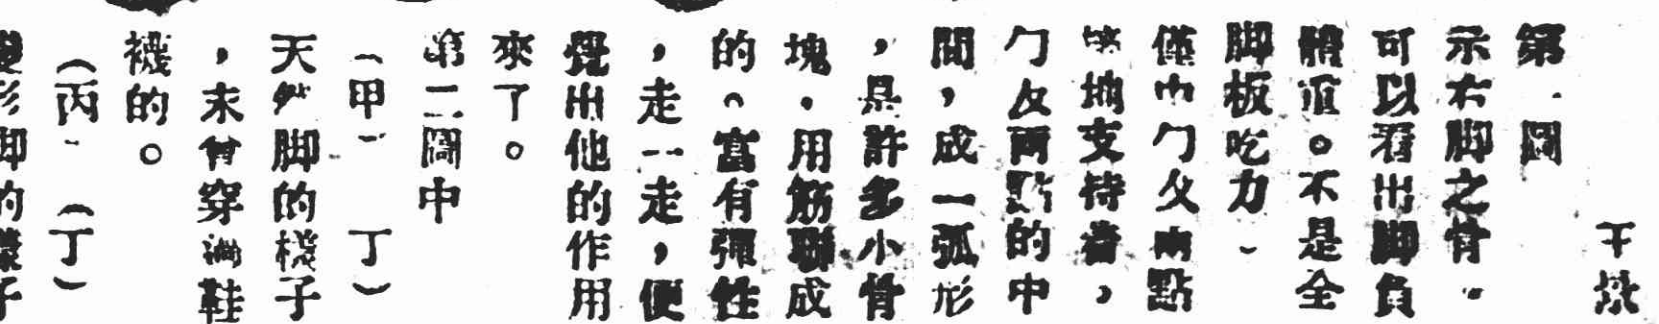 第一圖
示右脚之骨。
可以看出脚負
體重。不是全
脚板吃力、
僅由ㄅㄆ兩點
地支持着，
ㄅㄆ兩點的中
間，成一弧形
，是許多小骨
塊。用筋聯成
的。富有彈性
，走一走，便
覺出他的作用
來了。
第二圖中
（甲）　（丁）
天然脚的樣子
，未曾穿過鞋
襪的。
（丙）（丁）
變形脚的樣子